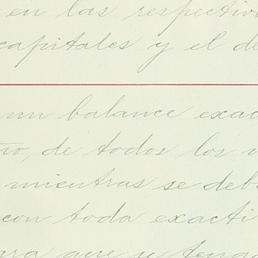 en las respectiv
capitales y el de
un balance exac
de todos los
mientras se deb
con toda exacti
para que se tenga